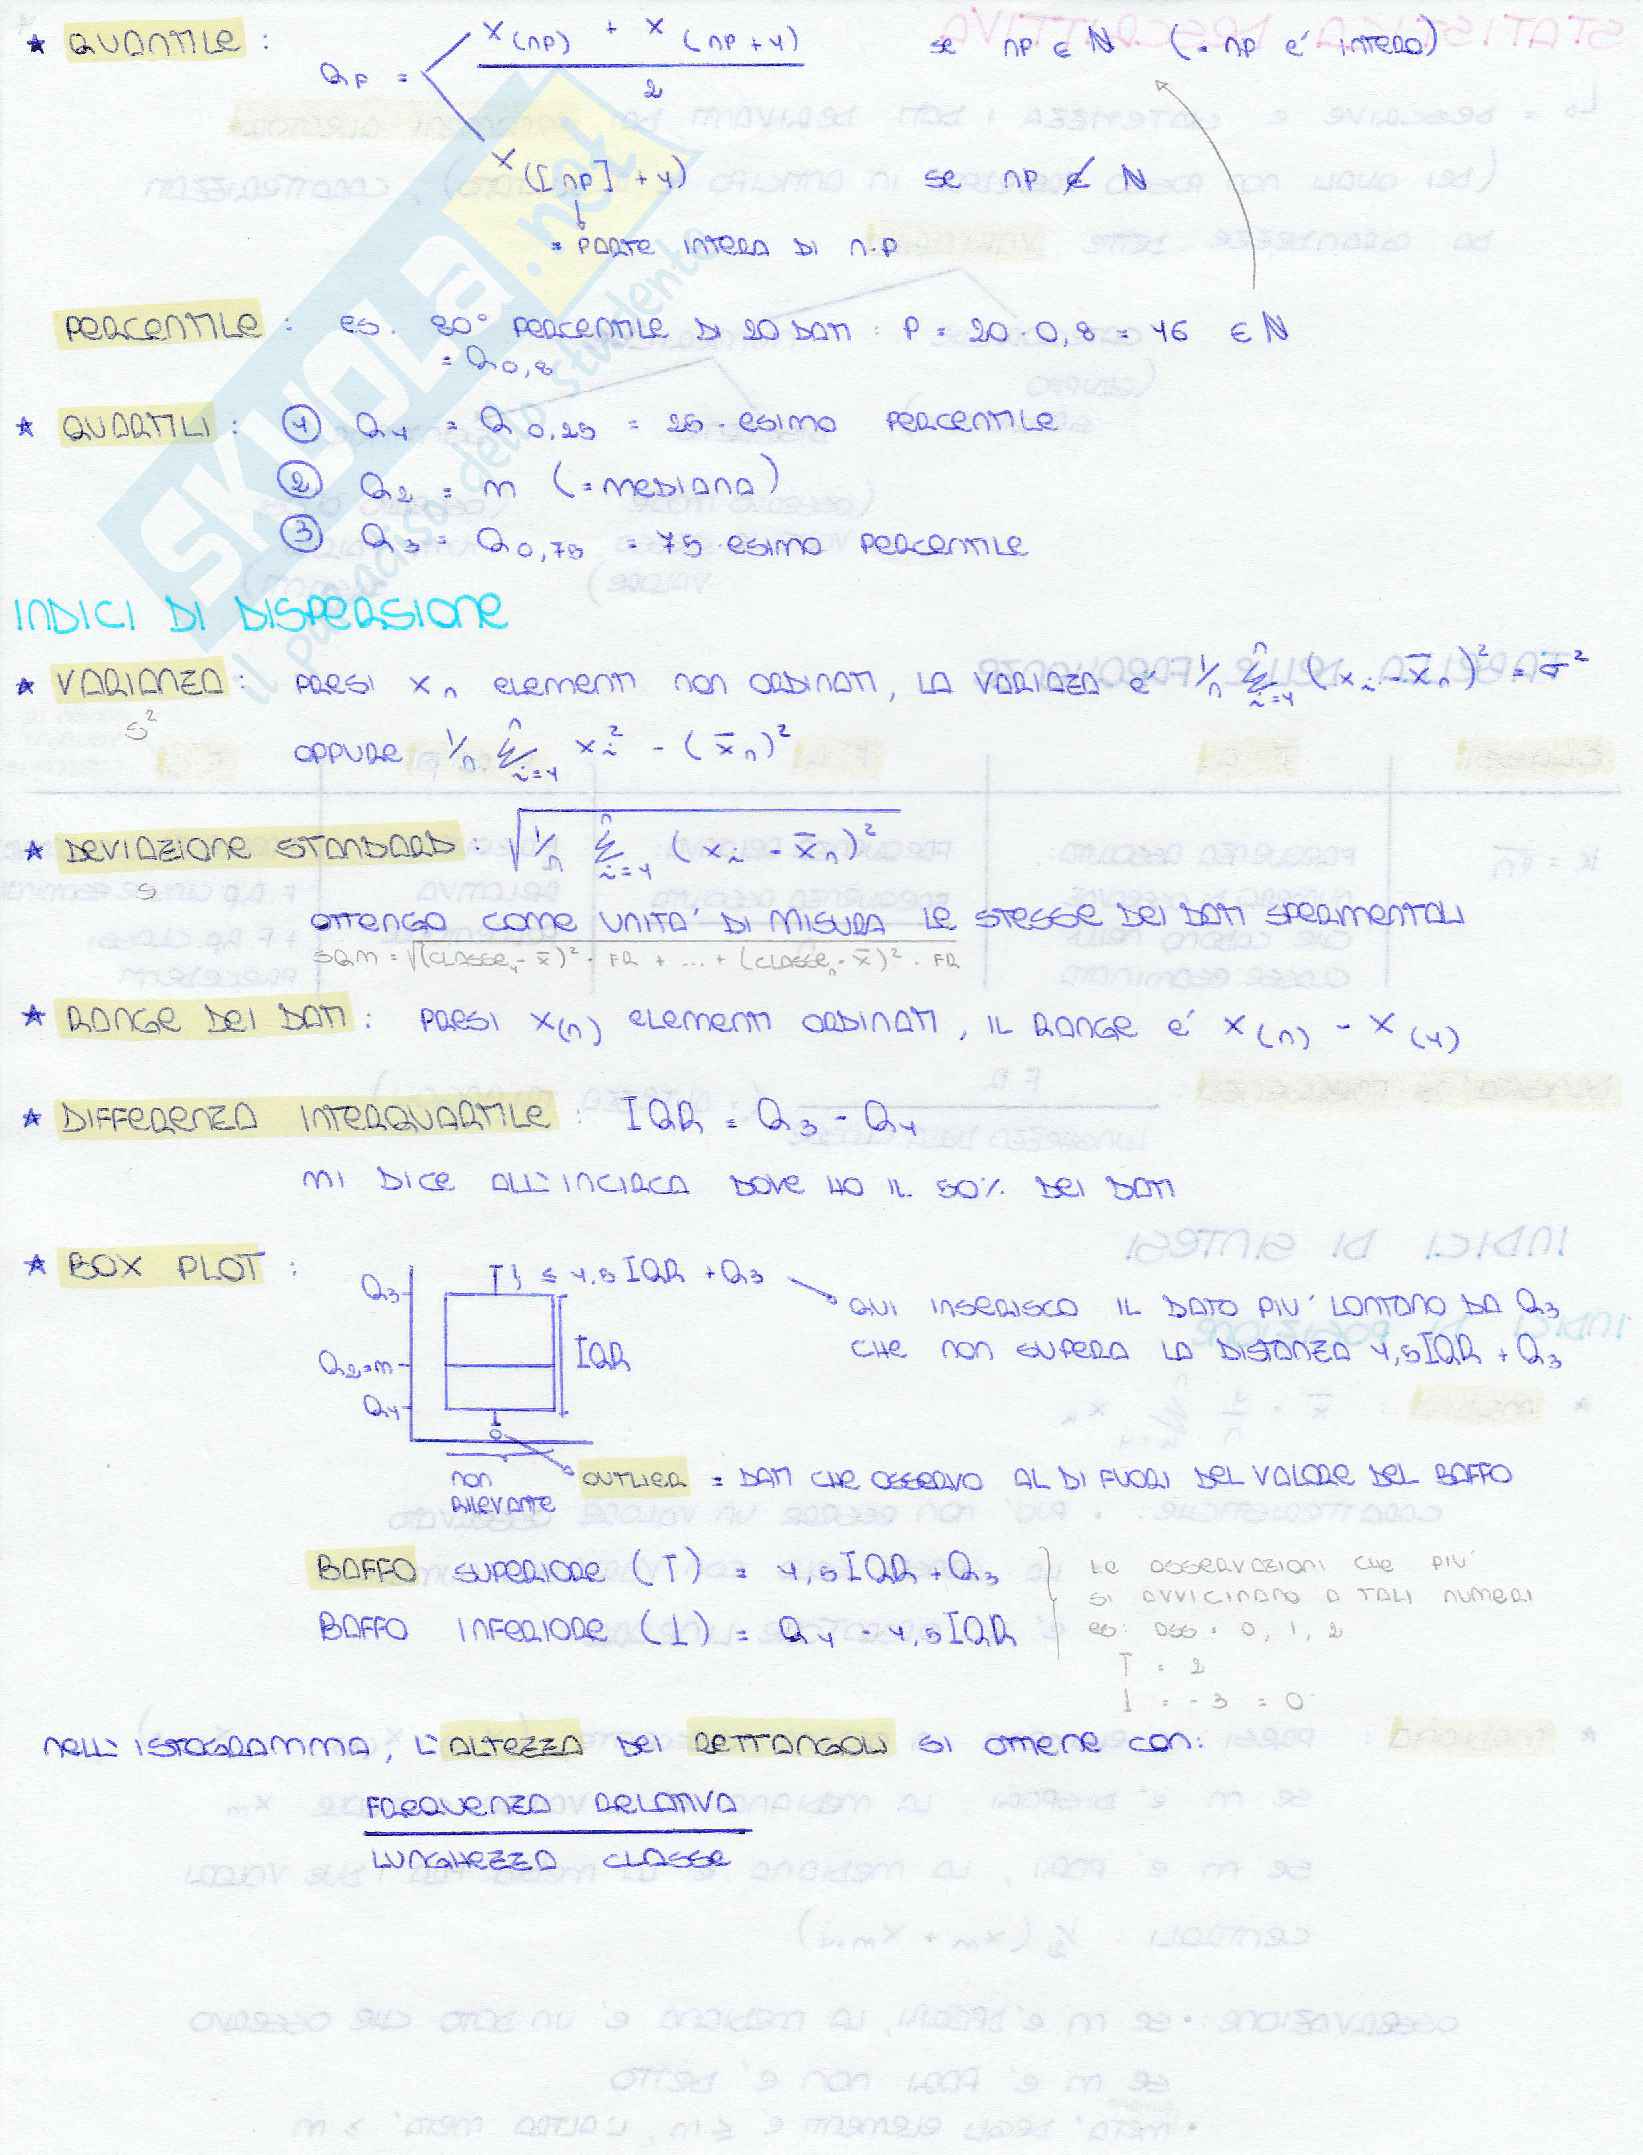 ★ QUANTILE : Qp = X(np) + X(np+1) / 2 se np ∈ N (= np é intero)
X([np]+1) se np ∉ N
= PARTE INTERA DI n·p
PERCENTILE : es. 80° PERCENTILE DI 20 DATI : P = 20·0,8 = 16 ∈ N
= Q0,8
★ QUARTILI : ① Q1 = Q0,25 = 25-esimo PERCENTILE
② Q2 = m (=mediana)
③ Q3 = Q0,75 = 75-esimo PERCENTILE
INDICI DI DISPERSIONE
★ VARIANZA : PRESI Xn elementi non ORDINATI, LA VARIAZA é 1/n Σ(i=1, n) (xi - x̄n)² = σ²
S²
OPPURE 1/n Σ(i=1, n) xi² - (x̄n)²
★ DEVIAZIONE STANDARD : √(1/n Σ(i=1, n) (xi - x̄n)²)
S
OTTENGO COME UNITA' DI MISURA LE STESSE DEI DATI SPERIMENTALI
SQM = √((CLASSE1 - x̄)² · FR + ... + (CLASSEn - x̄)² · FR)
★ RANGE DEI DATI : PRESI X(n) elementi ORDINATI, IL RANGE é X(n) - X(1)
★ DIFFERENZA INTERQUARTILE : IQR = Q3 - Q1
MI DICE ALL'INCIRCA DOVE HO IL 50% DEI DATI
★ BOX PLOT :
Q3
≤ 1.5 IQR + Q3
QUI INSERISCO IL DATO PIU' LONTANO DA Q3
CHE NON SUPERA LA DISTANZA 1,5IQR + Q3
Q2=m
IQR
Q1
NON RILEVANTE
OUTLIER = DATI CHE OSSERVO AL DI FUORI DEL VALORE DEL BAFFO
BAFFO SUPERIORE (T) = 1,5 IQR + Q3
BAFFO INFERIORE (⊥) = Q1 - 1,5 IQR
LE OSSERVAZIONI CHE PIU'
SI AVVICINANO A TALI NUMERI
es: oss = 0, 1, 2
T = 2
⊥ = -3 = 0
NELL'ISTOGRAMMA, L'ALTEZZA DEI RETTANGOLI SI OTTIENE CON:
FREQUENZA RELATIVA
LUNGHEZZA CLASSE
SKUOLA.net
il paradiso dello studente